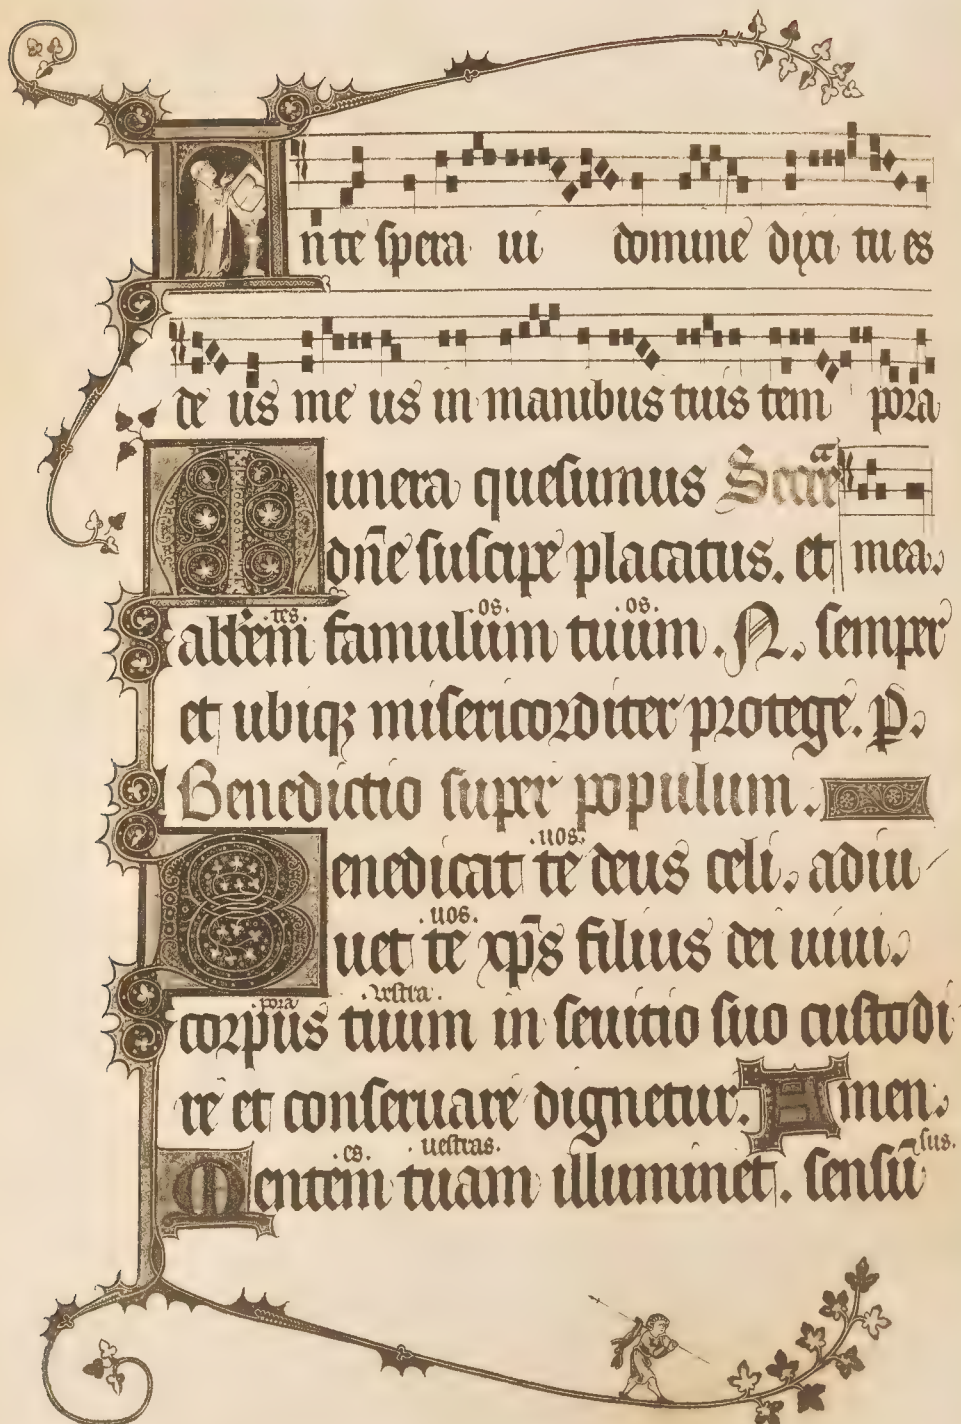 In te spera ui domine dixi tu es
de us me us in manibus tuis tem pora
Munera quesumus Secrē
dn̄e suscipe placatus. et mea.
tes. os. os.
abb̄em famulum tuum .N. semper
et ubiqꝫ misericorditer protege. p̄.
Benedictio super populum.
.uos.
Benedicat te deus celi. adiu
.uos.
uet te xp̄s filius dei uiui.
pora .vestra.
corpus tuum in seuitio suo custodi
re et conseruare dignetur. Amen.
es. .uestras. sus.
Mentem tuam illuminet. sensū